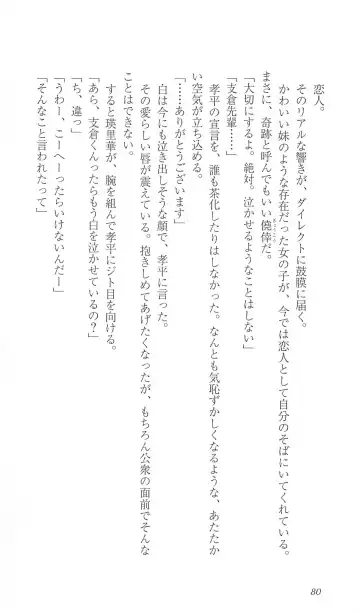 恋人。
そのリアルな響きが、ダイレクトに鼓膜に届く。
かわいい妹のような存在だった女の子が、今では恋人として自分のそばにいてくれている。
まさに、奇跡と呼んでもいい僥倖だ。
「大切にするよ。絶対。泣かせるようなことはしない」
「支倉先輩……」
孝平の宣言を、誰も茶化したりはしなかった。なんとも気恥ずかしくなるような、あたたか
い空気が立ち込める。
「……ありがとうございます」
白は今にも泣き出しそうな顔で、孝平に言った。
その愛らしい唇が震えている。抱きしめてあげたくなったが、もちろん公衆の面前でそんな
ことはできない。
すると瑛里華が、腕を組んで孝平にジト目を向ける。
「あら、支倉くんったらもう白を泣かせているの？」
「ち、違っ」
「うわー、こーへーったらいけないんだー」
「そんなこと言われたって」
80